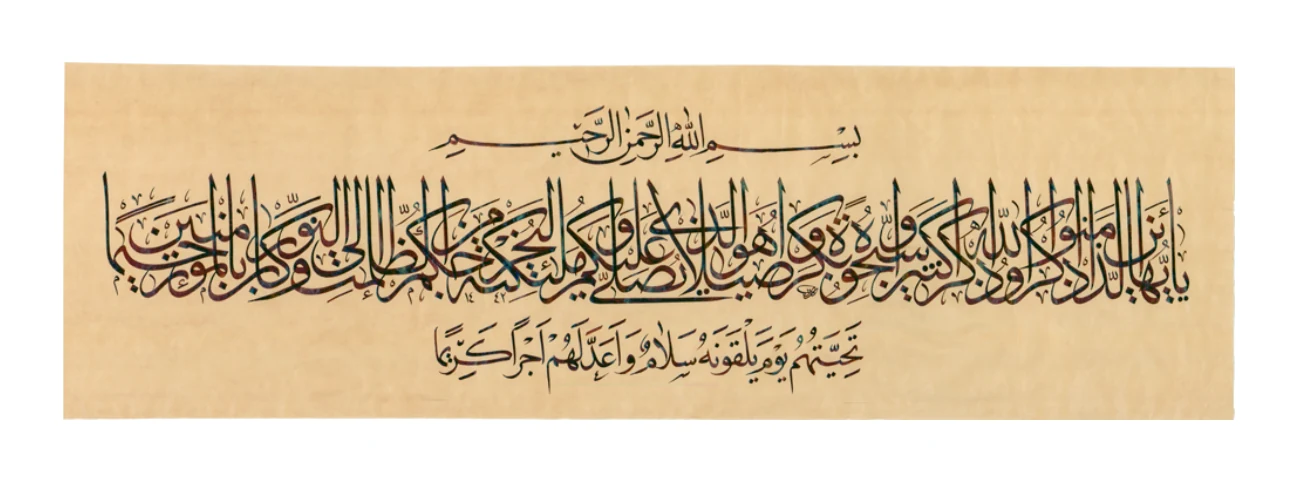 بِسْمِ اللّٰهِ الرَّحْمٰنِ الرَّحِيمِ
يا أيها الذين آمنوا اذكروا الله ذكرا كثيرا وسبحوه بكرة وأصيلا هو الذي يصلي عليكم وملائكته ليخرجكم من الظلمات إلى النور وكان بالمؤمنين رحيما
تَحِيَّتُهُمْ يَوْمَ يَلْقَوْنَهُ سَلَامٌ وَاَعَدَّ لَهُمْ اَجْرًا كَرِيمًا